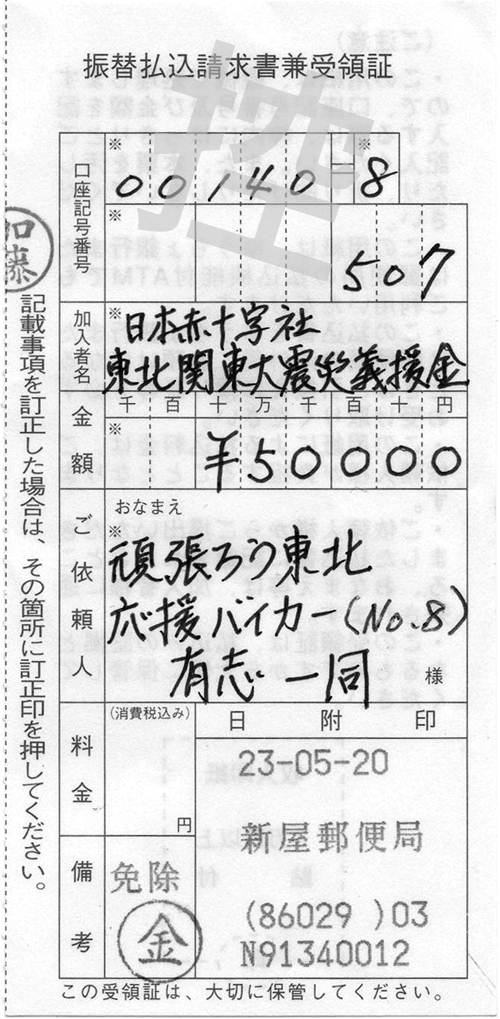 振替払込請求書兼受領証
控
口座記号番号
※
※
00140=8
※
507
加入者名
※
日本赤十字社
東北関東大震災義援金
金額
千百十万千百十円
※
¥50000
ご依頼人
おなまえ
※
頑張ろう東北
応援バイカー(No.8)
有志一同
様
料金
(消費税込み)
円
日附印
23-05-20
新屋郵便局
(86029 )03
N91340012
備考
免除
金
加藤
記載事項を訂正した場合は、その箇所に訂正印を押してください。
この受領証は、大切に保管してください。